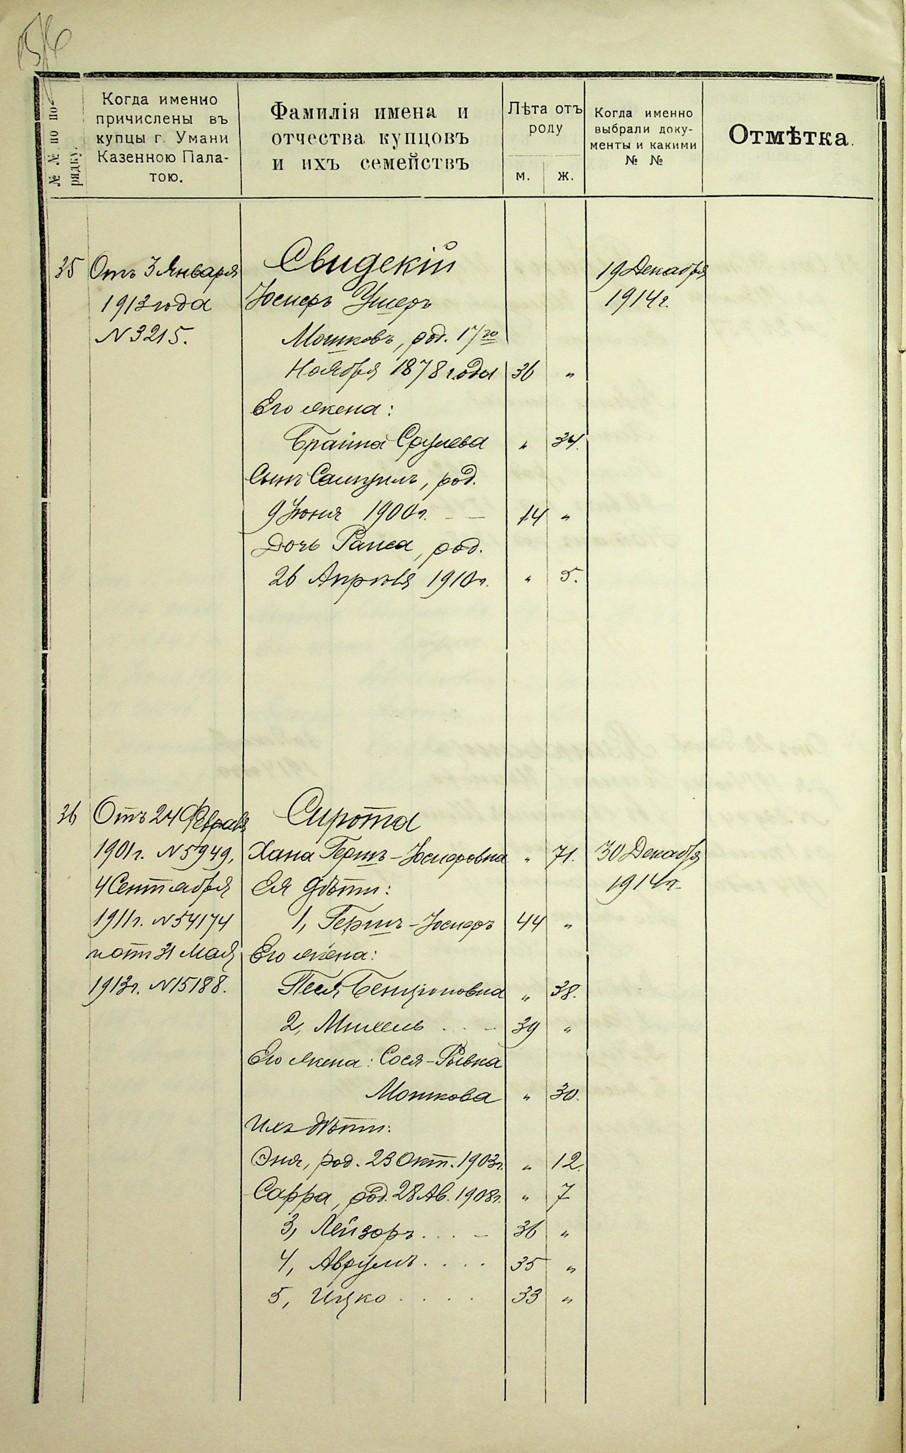 № № по по-
рядку.
Когда именно
причислены въ
купцы г. Умани
Казенною Пала-
тою.
Фамилія имена и
отчества купцовъ
и ихъ семействъ
Лѣта отъ
роду
м.
ж.
Когда именно
выбрали доку-
менты и какими
№ №
Отмѣтка.
35
Отъ 3 Января
1913 года
№ 3215.
Свидскій
Іосифъ Ушеръ
Мошковъ, род. 17/20
Ноября 1878 года 36 "
Его жена:
Брайна Срулева " 34.
Сынъ Самуилъ, род.
9 Іюня 1900 г. — — 14 "
Дочь Раиса, род.
26 Апрѣля 1910 г. " 5.
19 Декабря
1914 г.
36
Отъ 24 Февраля
1901 г. № 5949,
4 Сентября
1911 г. № 54174
и отъ 31 Мая
1913 г. № 15188.
Сирота
Хана Гершъ-Іосифовна " 71.
Ея дѣти:
1, Гершъ-Іосифъ 44 "
Его жена:
Песя Бенціоновна " 38.
2, Михель . . - 39 "
Его жена: Сося-Рывка
Мошкова " 30.
Ихъ дѣти:
Эня, род. 23 Окт. 1903 г. " 12.
Сарра, род. 28 Ав. 1908 г. " 7
3, Лейзоръ . . . - 36 "
4, Аврумъ . . . . 35 "
5, Ицко . . . . 33 "
30 Декабря
1914 г.